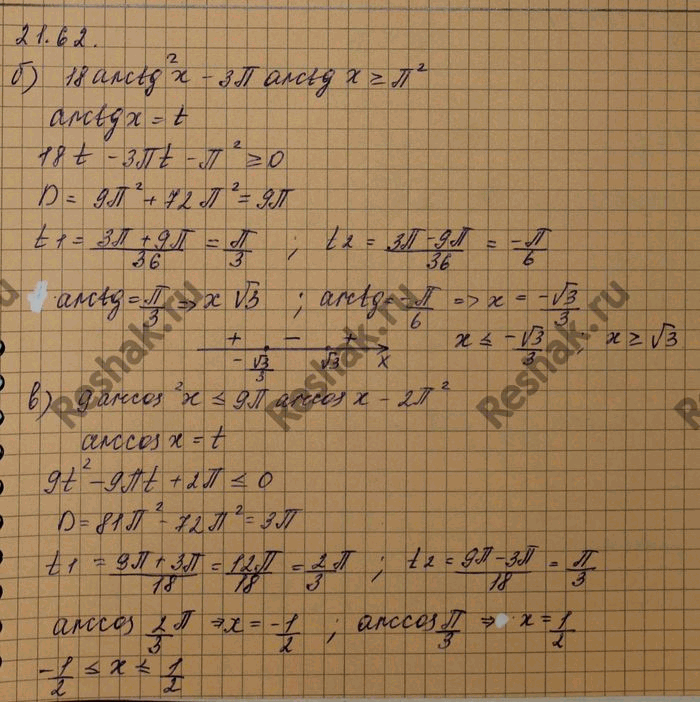 21.62.
б) 18 arctg²x - 3π arctg x ≥ π²
arctg x = t
18t - 3πt - π² ≥ 0
D = 9π² + 72π² = 9π
t1 = (3π + 9π)/36 = π/3 ; t2 = (3π - 9π)/36 = -π/6
arctg = π/3 => x √3 ; arctg = -π/6 => x = -√3/3
+ - + x ≤ -√3/3 ; x ≥ √3
-√3/3 √3 x
в) 9 arccos²x ≤ 9π arccos x - 2π²
arccos x = t
9t² - 9πt + 2π ≤ 0
D = 81π² - 72π² = 3π
t1 = (9π + 3π)/18 = 12π/18 = 2/3 π ; t2 = (9π - 3π)/18 = π/3
arccos 2/3 π => x = -1/2 ; arccos π/3 => x = 1/2
-1/2 ≤ x ≤ 1/2
Reshak.ru
Reshak.ru
Reshak.ru